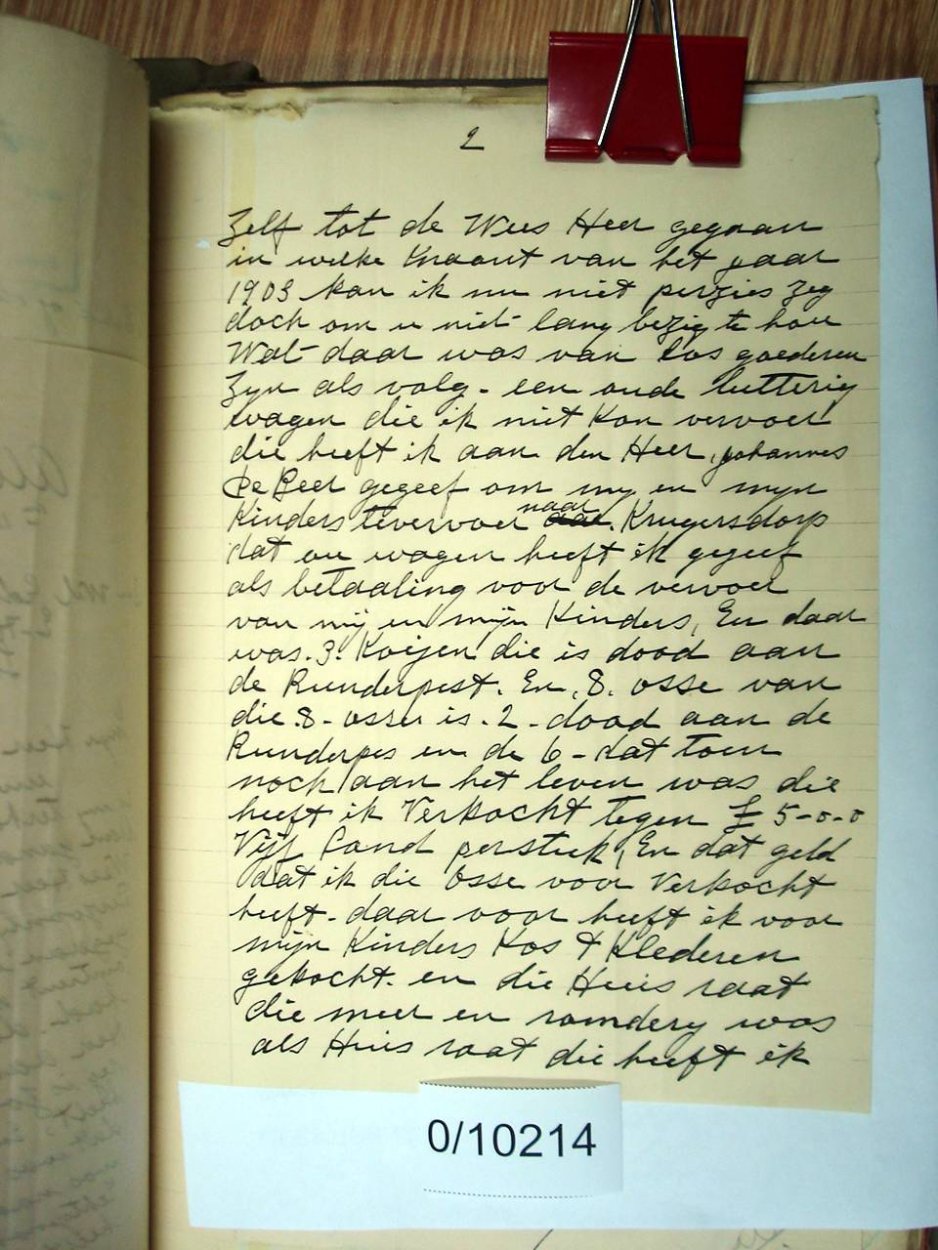 2
Zelf tot de Wees Heer gegaan
in welke Maant van het jaar
1903 kan ik nu niet perzies zeg
doch om u niet lang bezig te hou
Wat daar was van los goederen
Zyn als volg - een oude
wagen die ik niet kon vervoer
die heeft ik aan den Heer Johannes
de Beer gegeef om my en myn
Kinders tevervoer naar Krugersdorp
dat ou wagen heeft ik gegeef
als betaaling voor de vervoer
van mij en mijn Kinders, En daar
was. 3. Koijen die is dood aan
de Runderpest. En. 8. osse van
die. 8 - ossen is. 2 - dood aan de
Runderpes en de 6 - dat toen
noch aan het leven was die
heeft ik Verkocht tegen £ 5-0-0
Vijf Pond perstuk, En dat geld
dat ik die Osse voor Verkocht
heeft - daar voor heeft ik voor
mijn Kinders Kos & Klederen
gekocht. en die Huis raat
die meer en was
als Huis raat die heeft ik
0/10214